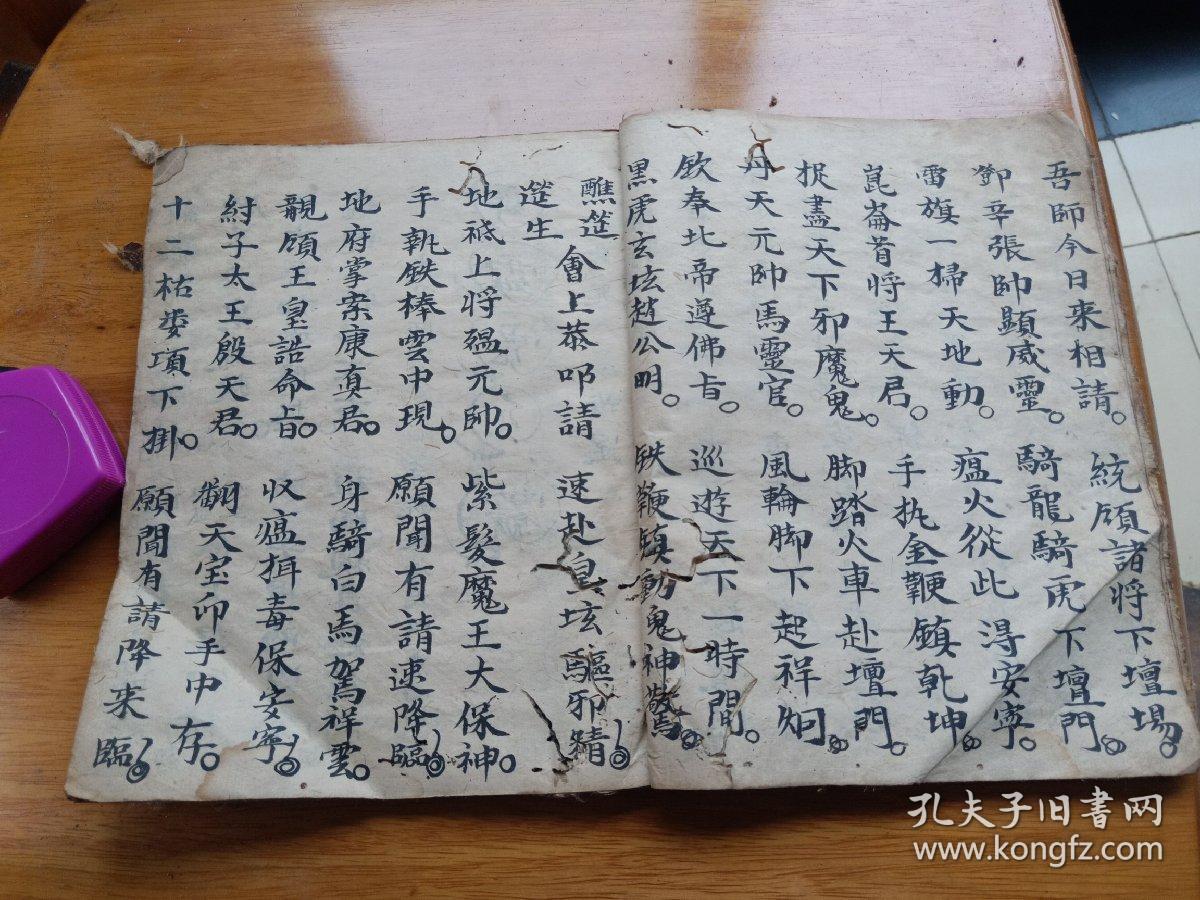 吾師今日来相請。統領諸将下壇場。
鄧辛張帥顯威靈。騎龍騎虎下壇門。
雷旗一掃天地動。瘟火從此淂安寧。
崑崙首将王天君。手执金鞭鎮乾坤。
捉盡天下邪魔鬼。脚踏火車赴壇門。
丹天元帥馬靈官。風輪脚下起祥烟。
欽奉北帝遵佛旨。巡遊天下一時間。
黑虎玄坛趙公明。鉄鞭鎮動鬼神驚。
醮筵
筵生
會上恭叩請 速赴皇坛驅邪精。
地祇上将瘟元帥。紫髮魔王大保神。
手執鉄棒雲中現。願聞有請速降臨。
地府掌案康真君。身騎白馬駕祥雲。
親領王皇誥命旨。收瘟揖毒保安寧。
紂子太王殷天君。翻天宝印手中存。
十二枯娄項下掛。願聞有請降来臨。
孔夫子旧书网
www.kongfz.com